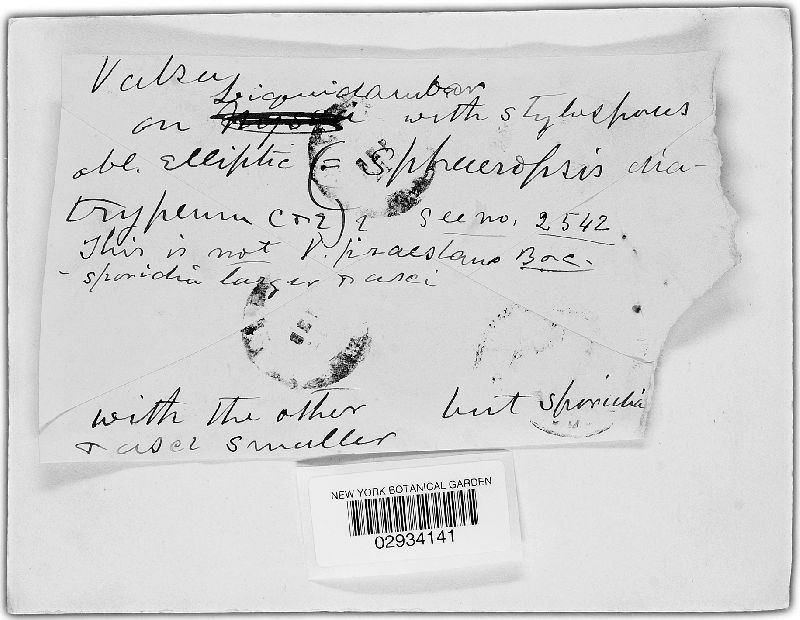 Valsa
Liquidambar
on with stylospores
obl. elliptic (= Sphaeropsis dia-
trypeum C & E) ? See no. 2542
This is not V. praestans B&C -
- sporidia larger & asci
with the other but sporidia
& asci smaller
NEW YORK BOTANICAL GARDEN
02934141